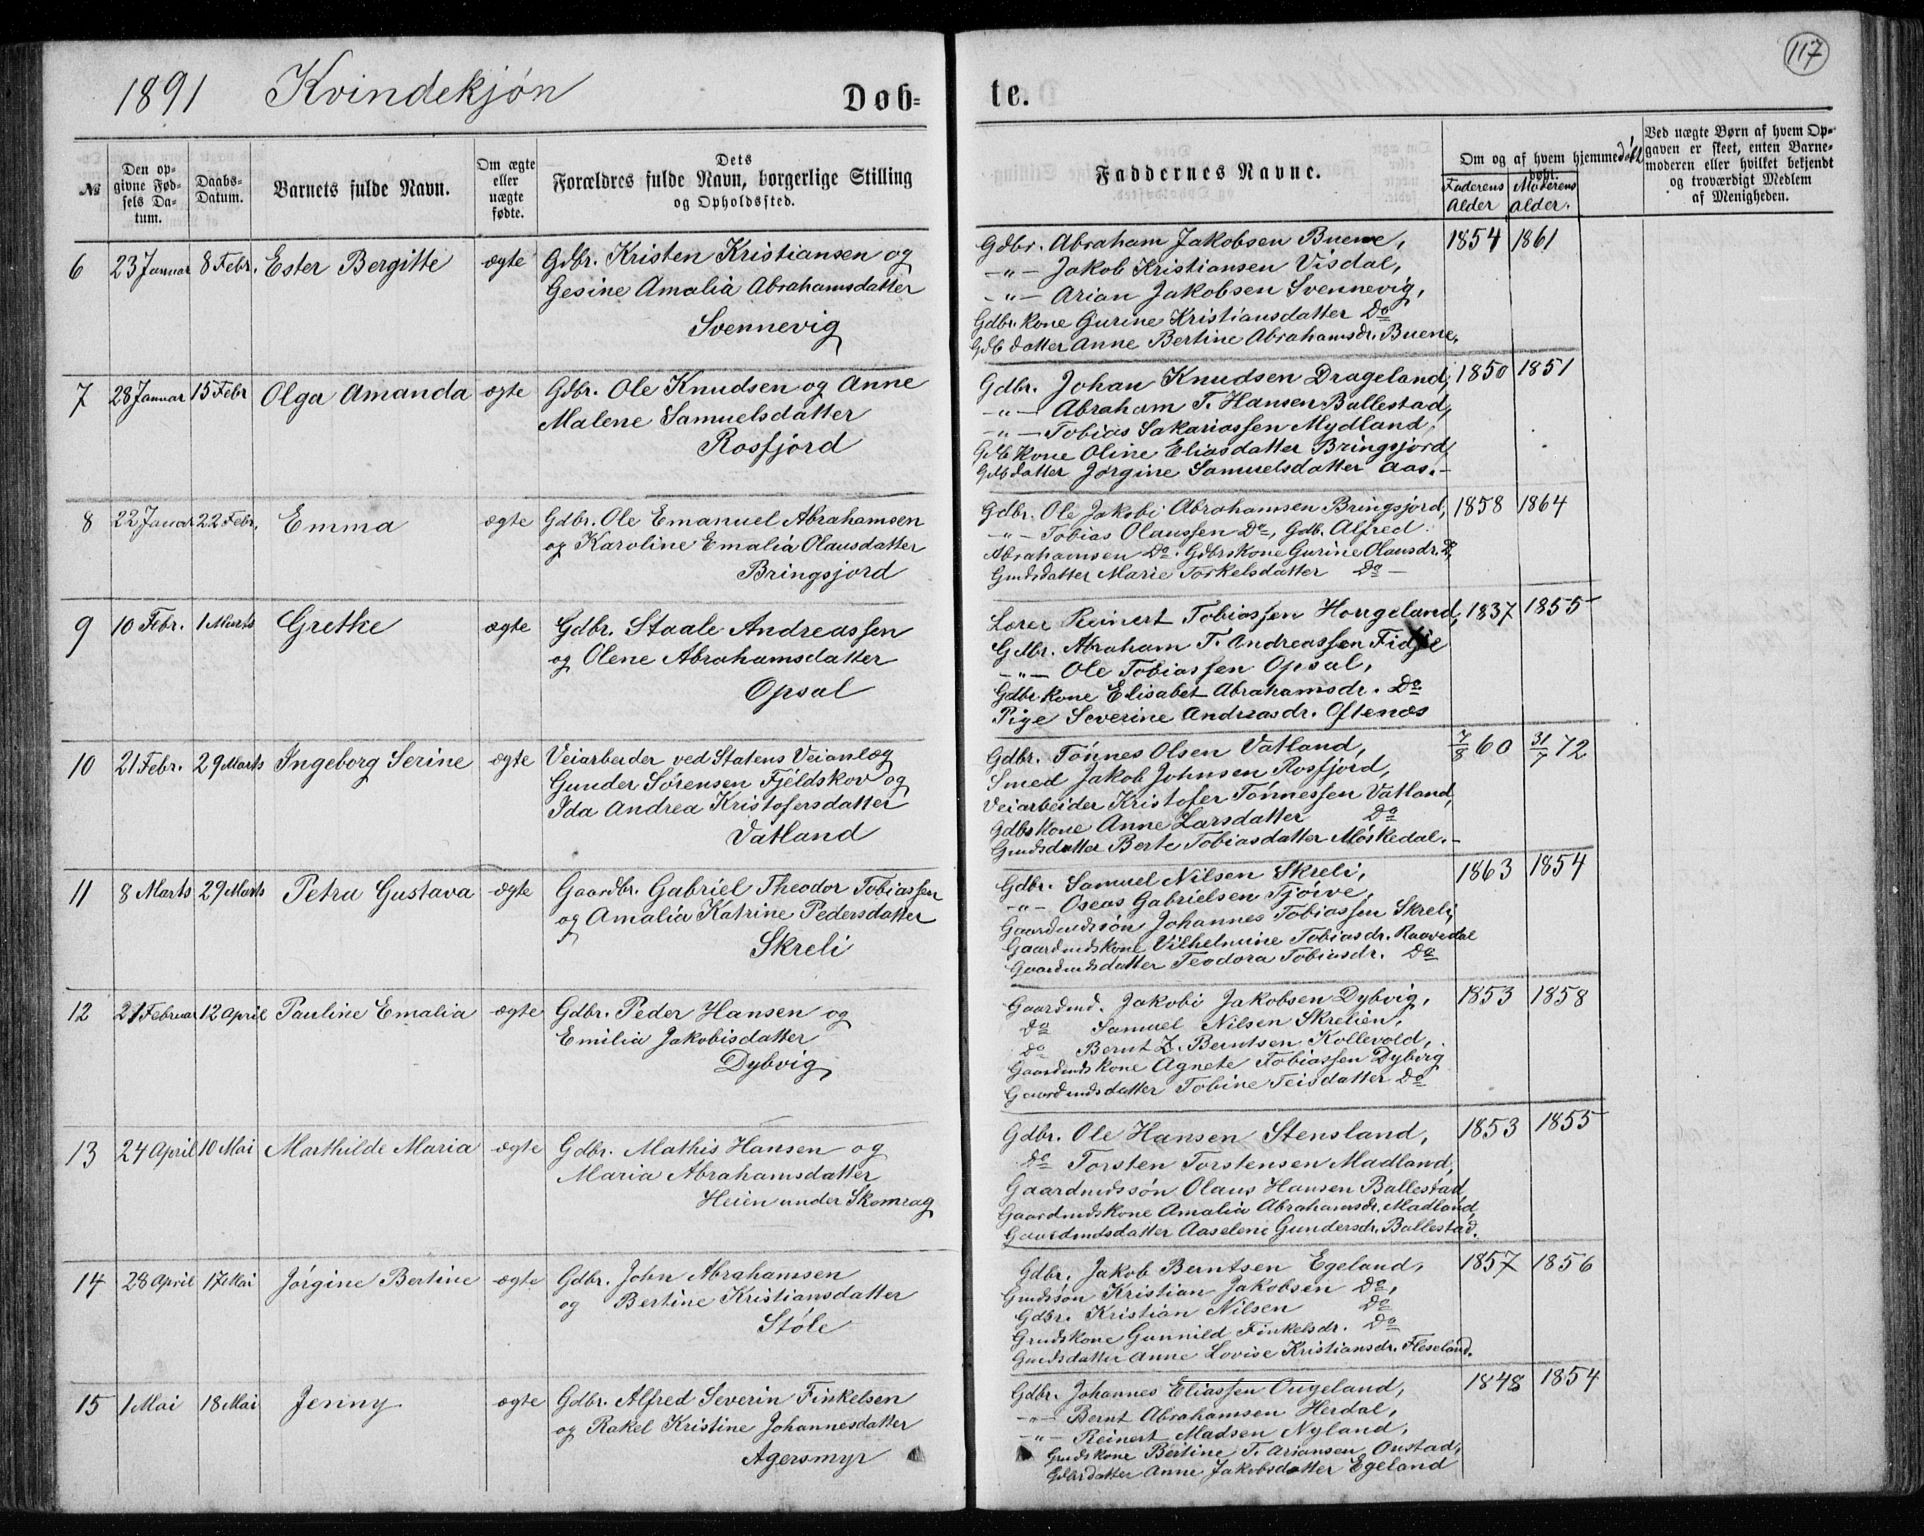 117
1891 Kvindekjøn
Døb=
te.
№
Den op-
givne Fød-
sels Da-
tum.
Daabs-
Datum.
Barnets fulde Navn.
Om ægte
eller
uægte
fødte.
Dets
Forældres fulde Navn, borgerlige Stilling
og Opholdssted.
Faddernes Navne.
Om og af hvem hjemmedøbt
døbt.
Faderens Alder
Moderens alder.
Ved uægte Børn af hvem Op-
gaven er skeet, enten Barne-
moderen eller hvilket bekjendt
og troværdigt Medlem
af Menigheden.
6 23 Januar 8 Febr. Ester Bergitte ægte Gdbr. Kristen Kristiansen og
Gesine Amalia Abrahamsdatter
Svennevig
Gdbr. Abraham Jakobsen Buene, 1854 1861
-"- Jakob Kristiansen Visdal,
-"- Arian Jakobsen Svennevig,
Gdbr. kone Gurine Kristiansdatter Do
Gdb datter Anne Bertine Abrahamsdr. Buene.
7 28 Januar 15 Febr Olga Amanda ægte Gdbr. Ole Knudsen og Anne
Malene Samuelsdatter
Rosfjord
Gdbr. Johan Knudsen Drageland, 1850 1851
-"- Abraham T. Hansen Ballestad,
-"- Tobias Sakariassen Mydland,
Gdb Kone Oline Eliasdatter Bringsjord,
Gdb datter Jørgine Samuelsdatter Aas.-
8 22 Januar 22 Febr. Emma ægte Gdbr. Ole Emanuel Abrahamsen
og Karoline Emalia Olausdatter
Bringsjord
Gdbr. Ole Jakobi Abrahamsen Bringsjord, 1858 1864
-"- Tobias Olaussen Do, Gdb. Alfred
Abrahamsen Do. Gdbrskone Gurine Olausdr. Do,
Gmdsdatter Marie Torkelsdatter Do -
9 10 Febr. 1 Marts Grethe ægte Gdbr. Staale Andreassen
og Olene Abrahamsdatter
Opsal
Lærer Reinert Tobiassen Hougeland, 1837 1855
Gdbr. Abraham T. Andreassen Fidje
-"- Ole Tobiassen Opsal,
Gdbr kone Elisabet Abrahamsdr. Do
Pige Severine Andreasdr. Oftenæs
10 21 Febr. 29 Marts Ingeborg Serine ægte Veiarbeider ved Statens Veianlæg
Gunder Sørensen Fjeldskov og
Ida Andrea Kristofersdatter
Vatland
Gdbr. Tønnes Olsen Vatland, 7/8 60 31/7 72
Smed Jakob Johnsen Rosfjord,
Veiarbeider Kristofer Tønnessen Vatland,
Gdbskone Anne Larsdatter Do
Gmdsdatter Berte Tobiasdatter Møskedal.-
11 8 Marts 29 Marts Petra Gustava ægte Gaardbr. Gabriel Theodor Tobiassen
og Amalia Katrine Pedersdatter
Skreli
Gdbr. Samuel Nilsen Skreli, 1863 1854
-"- Oseas Gabrielsen Tjøive,
Gaardmdssøn Johannes Tobiassen Skreli,
Gaardmdskone Vilhelmine Tobiasdr. Raavedal
Gaardmdsdatter Teodora Tobiasdr. Do
12 21 Februar 12 April Pauline Emalia ægte Gdbr. Peder Hansen og
Emilia Jakobisdatter
Dybvig
Gaardmd. Jakobi Jakobsen Dybvig, 1853 1858
do Samuel Nilsen Skrelien,
do Bernt Z. Berntsen Kollevold,
Gaardmds kone Agnete Tobiassen Dybvig
Gaardmdsdatter Tobine Teisdatter Do
13 24 April 10 Mai Marthilde Maria ægte Gdbr. Mathis Hansen og
Maria Abrahamsdatter
Heien under Skomrag
Gdbr. Ole Hansen Stensland, 1853 1855
do Torsten Torstensen Madland,
Gaardmdssøn Olaus Hansen Ballestad
Gaardmdskone Amalia Abrahamsdr. Madland,
Gaardmdsdatter Aaselene Gundersdr. Ballestad.
14 28 April 17 Mai Jørgine Bertine ægte Gdbr. John Abrahamsen
og Bertine Kristiansdatter
Støle
Gdbr. Jakob Berntsen Egeland, 1857 1856
Gmdssøn Kristian Jakobsen Do,
Gdbr. Kristian Nilsen Do
Gmdskone Gunnild Finkelsdr. Do
Gmdsdatter Anne Lovise Kristiansdr. Fleseland.
15 1 Mai 18 Mai Jenny ægte Gdbr. Alfred Severin Finkelsen
og Rakel Kristine Johannesdatter
Agersmyr
Gdbr. Johannes Eliassen Ougeland, 1848 1854
-"- Bernt Abrahamsen Herdal,
-"- Reinert Madsen Nyland,
Gmdskone Bertine T. Ariansen Onstad,
Gdbrdatter Anne Jakobsdatter Egeland